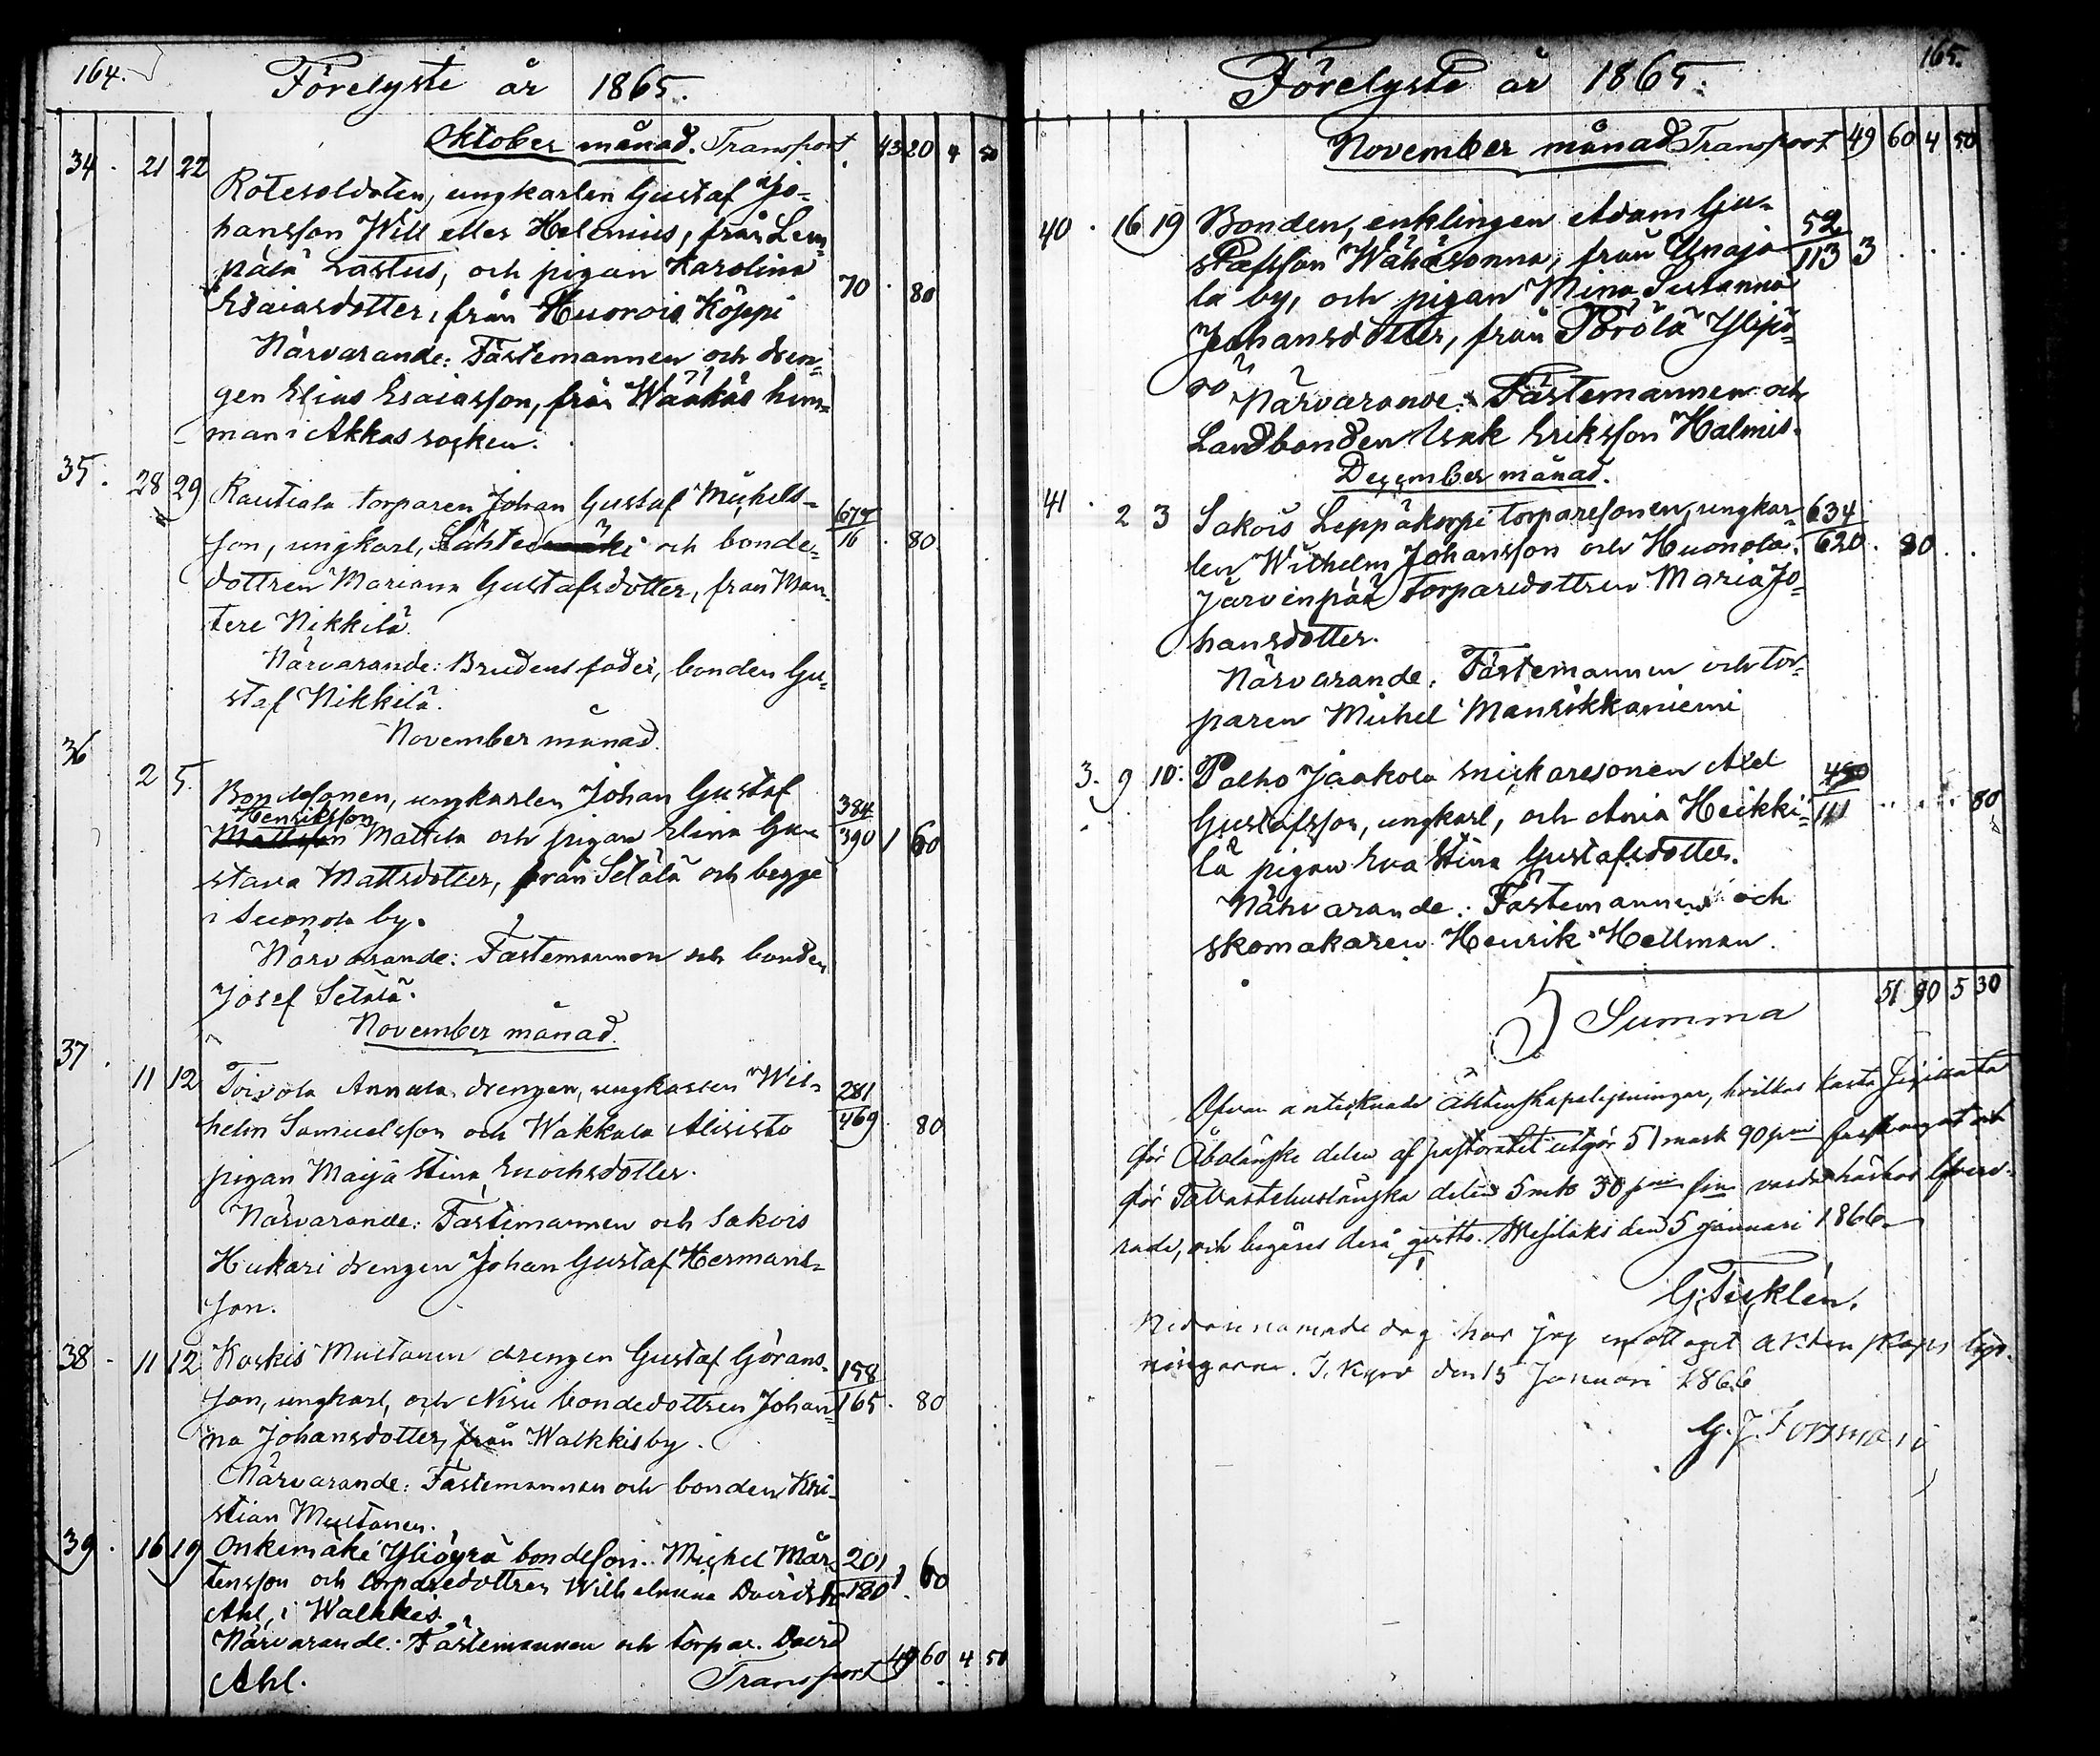 164.
Förelyste år 1865.
Oktober månad. Transport 43 20 4 50
34. 21 22
Rotesoldaten, ungkarlen Gustaf Jo-
hansson Will eller Helenius, från Lem-
pälä Lastus, och pigan Karolina
Esaiasdotter, från Huorois Köppi 70 . 80
Närvarande: Fästemannen och dren-
gen Elias Esaiasson, från Wääkäs hem-
man i Akkas socken.
35. 28 29 Rautiala torparen Johan Gustaf Michels-
son, ungkarl, Lähteenmäki och bonde- 677/16 . 80
dottren Mariana Gustafsdotter, från Man-
tere Nikkilä.
Närvarande: Brudens fader, bonden Gu-
staf Nikkilä.
November månad.
36 2 5.
Bondesonen, ungkarlen Johan Gustaf
Henriksson
Mattsson Mattila och pigan Elina Gu- 384/390 1 60
stava Mattsdotter, från Setälä och begge
i Suonola by.
Närvarande: Fästemannen och bonden
Josef Setälä.
November månad.
37. 11 12 Toivola Annala drengen, ungkarlen Wil- 281/469 . 80
helm Samuelsson och Wakkala Alisisto
pigan Maija Stina Enochsdotter.
Närvarande: Fästemannen och Sakois
Hukari drengen Johan Gustaf Hermans-
son.
38. 11 12 Koskis Mustanen drengen Gustaf Görans- 158/165 . 80
son, ungkarl, och Nisu bondedottren Johan-
na Johansdotter, från Walkkis by.
Närvarande: Fästemannen och bonden Kri-
stian Mustanen.
39. 16 19 Onkemäki Yliäyrä bondeson. Michel Mår- 201/180 1. 60
tensson och torparedottren Wilhelmina Davidsdr
Ahl, i Walkkis.
Närvarande: Fästemannen och torpar. David
Ahl. Transport 49 60 4 50
165.
Förelyste år 1865.
November månad Transport 49 60 4 50
40. 16 19 Bonden, enklingen Adam Gu- 52/113 3
stafsson Wähäsonna, från Unaja-
la by, och pigan Mina Susanna
Johansdotter, från Pörölä Ylipö-
rö
Närvarande: Fästemannen och
Landbonden Isak Eriksson Halmis.
December månad.
41. 2 3 Sakois Leppäkorpi torparesonen, ungkar- 634/620 . 80
len Wilhelm Johansson och Huonola
Järvenpää torparedottren Maria Jo-
hansdotter.
Närvarande: Fästemannen och tor-
paren Michel Mansikkaniemi
3. 9 10. Palho Jaakola snickaresonen Axel 450/111 80
Gustafsson, ungkarl, och Ania Heikki-
lä pigan Eva Stina Gustafsdotter.
Närvarande: Fästemannen och
skomakaren Henrik Hellman.
Summa 51 90 5 30
Ofvan antecknade äktenskapslysningar, hvilkas
för Åboländske delen af pastoratet utgör 51 mark 90 pni
för Tavastehusländska delen 5 mk 30 pni
rade, och begäres derå qvitto. Wesilaks den 5 Januari 1866.
G. Ticklén.
Nedannämnde dag har jag emottagit äktenskaps lys-
ningarne. T. Kyrö den 15 Januari 1866
G. J. Forsman